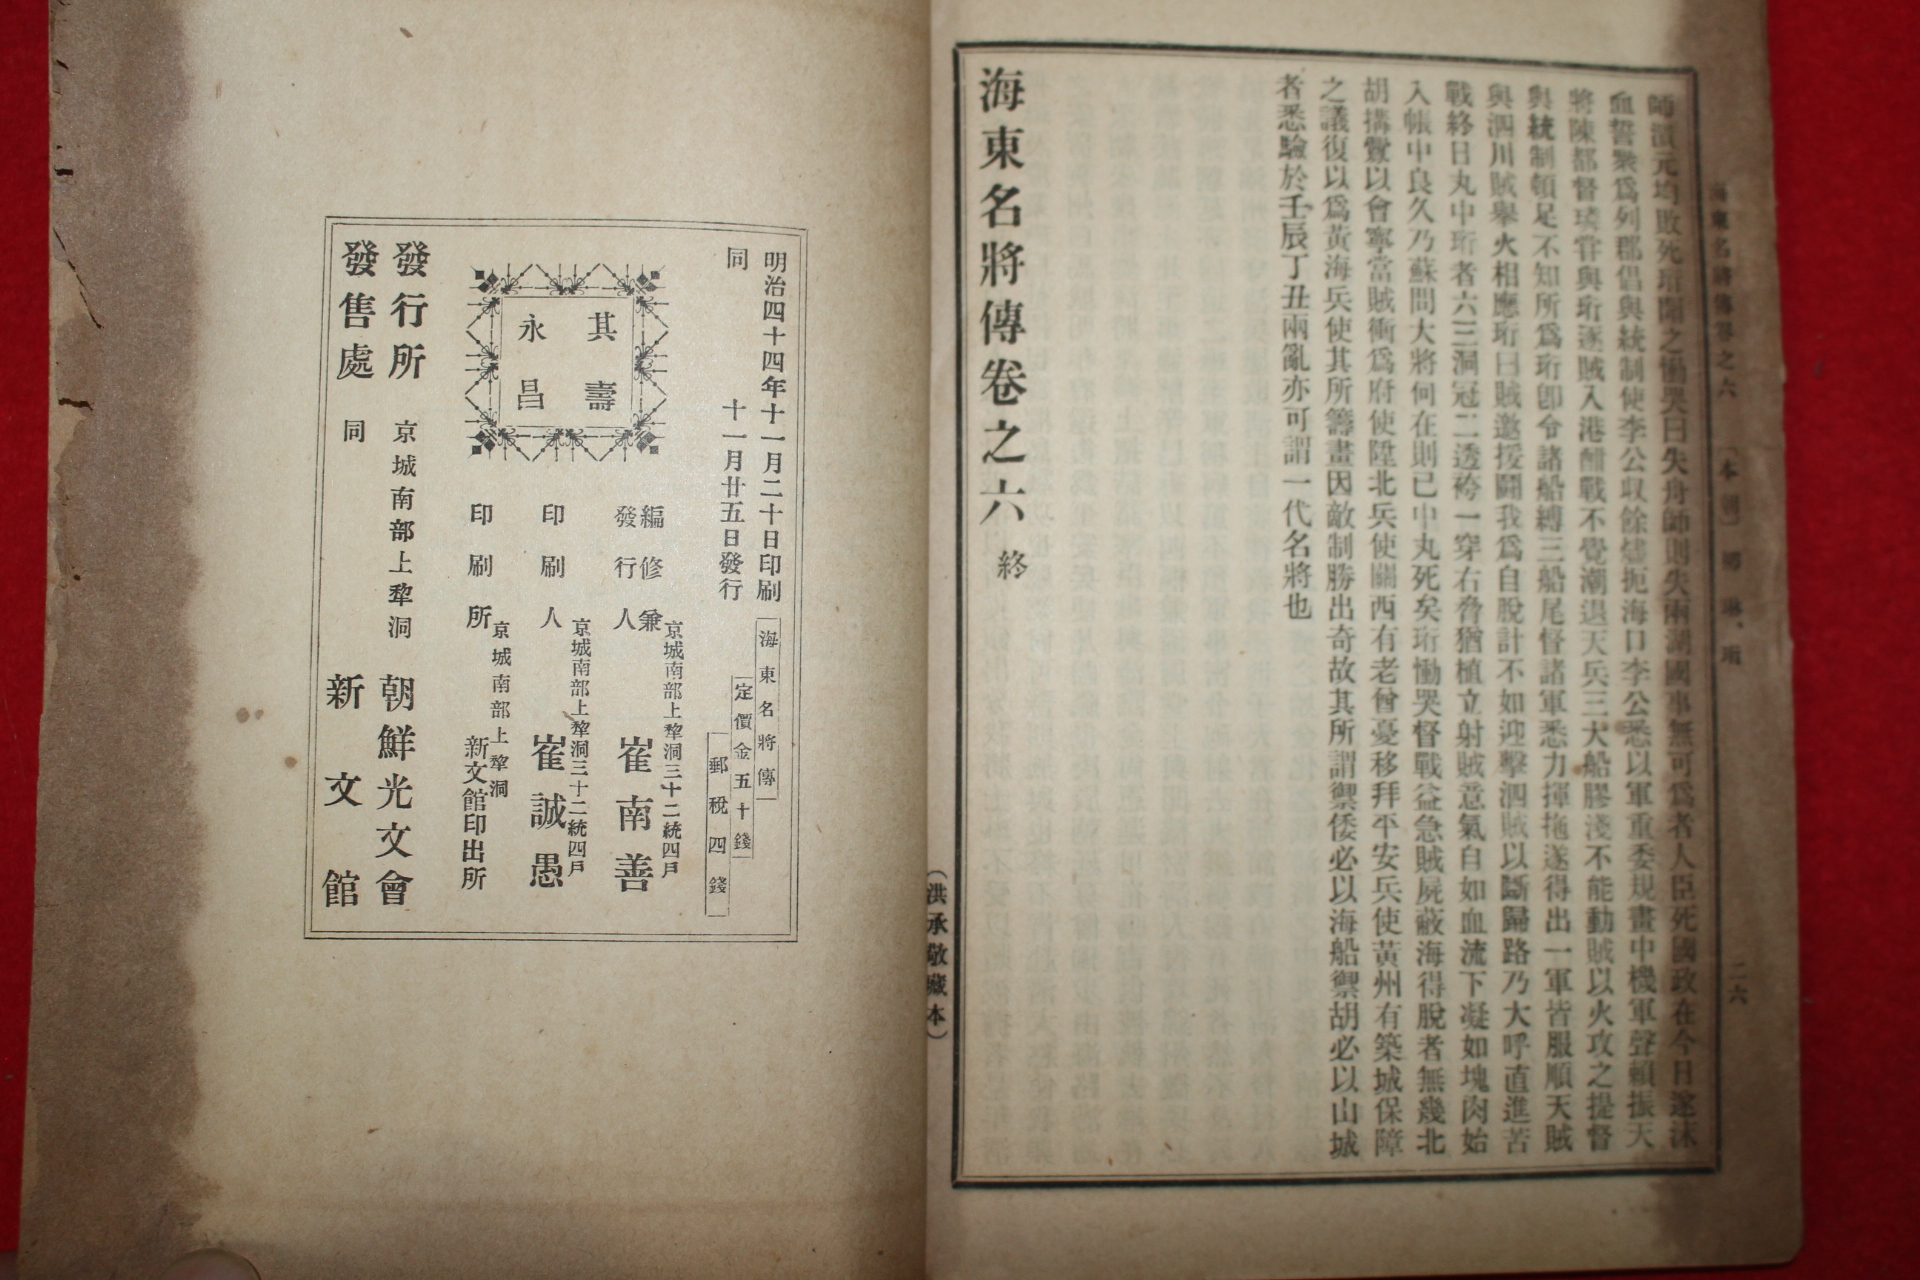 海東名將傳卷之六 〔本朝〕 二六
師潰元均敗死珩聞之慟哭曰失舟師則失兩湖國事無可爲者人臣死國政在今日遂沫
血誓衆爲列郡倡與統制使李公収餘燼扼海口李公悉以軍重委規畫中機軍聲賴振天
將陳都督璘甞與珩逐賊入港酣戰不覺潮退天兵三大船膠淺不能動賊以火攻之提督
與統制頓足不知所爲珩卽令諸船縛三船尾督諸軍悉力揮拖遂得出一軍皆服順天賊
與泗川賊舉火相應珩曰賊邀援鬪我爲自脫計不如迎擊泗賊以斷歸路乃大呼直進苦
戰終日丸中珩者六三洞冠二透袴一穿右脅猶植立射賊意氣自如血流下凝如塊肉始
入帳中良久乃蘇問大將何在則已中丸死矣珩慟哭督戰益急賊屍蔽海得脫者無幾北
胡搆釁以會寧當賊衝爲府使陞北兵使關西有老酋憂移拜平安兵使黃州有築城保障
之議復以爲黃海兵使其所籌畫因敵制勝出奇故其所謂禦倭必以海船禦胡必以山城
者悉驗於壬辰丁丑兩亂亦可謂一代名將也
海東名將傳卷之六 終
(洪承敬藏本)
明治四十四年十一月二十日印刷
同 十一月廿五日發行
海東名將傳
定價金五十錢
郵稅四錢
其壽
永昌
京城南部上犂洞三十二統四戶
編修兼發行人 崔南善
京城南部上犂洞三十二統四戶
印刷人 崔誠愚
京城南部上犂洞
印刷所 新文館印出所
發行所 京城南部上犂洞 朝鮮光文會
發售處 同 新文館